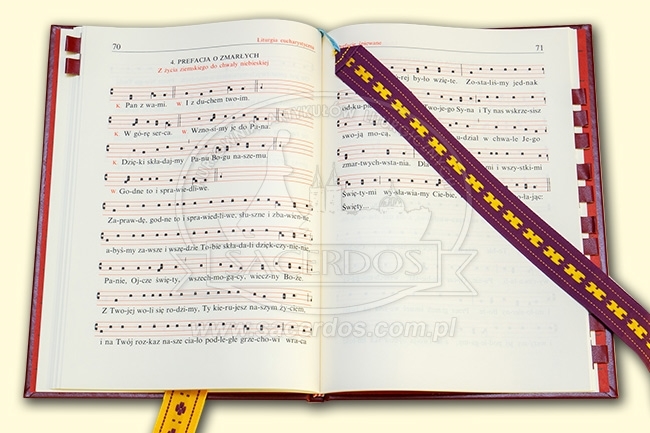 70
Liturgia eucharystyczna
4. PREFACJA O ZMARŁYCH
Z życia ziemskiego do chwały niebieskiej
K. Pan z wa-mi. W. I z du-chem two-im.
K. W gó-rę ser-ca. W. Wzno-si-my je do Pa-na.
K. Dzię-ki skła-daj-my Pa-nu Bo-gu na-sze-mu.
W. Go-dne to i spra-wie-dli-we.
Za-praw-dę, god-ne to i spra-wied-li-we, słu-szne i zba-wien-ne,
a-byś-my za-wsze i wszę-dzie To-bie skła-da-li dzięk-czy-nie-nie,
Pa-nie, Oj-cze świę-ty, wszech-mo-gą-cy, wiecz-ny Bo-że.
Z Two-jej wo-li się ro-dzi-my, Ty kie-ru-jesz na-szym ży-ciem,
i na Twój roz-kaz na-sze cia-ło pod-le-głe grze-cho-wi wra-ca
71
by-ło wzię-te. Zo-sta-liś-my jed-nak
od-ku- Two-je-go Sy-na i Ty nas wskrze-sisz
swo-ją mo-cą, u-dział w chwa-le Je-go
zmar-twych-wsta-nia. i wszy-stki-mi
Świę-ty-mi wy-sła-wia-my Cie-bie,
Święty...
SACERDOS
www.sacerdos.com.pl